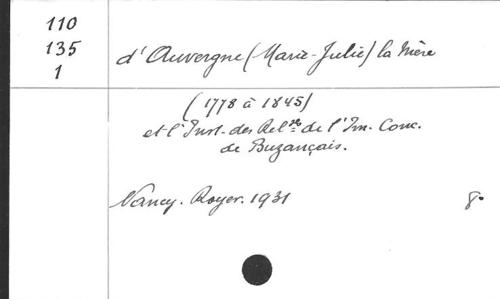 110
135
1
d'Auvergne (Marie-Julie) la Mère
(1778 à 1845)
et l'Inst. des Rel.ses de l'Im. Conc.
de Buzançais.
Nancy. Royer. 1931 8º